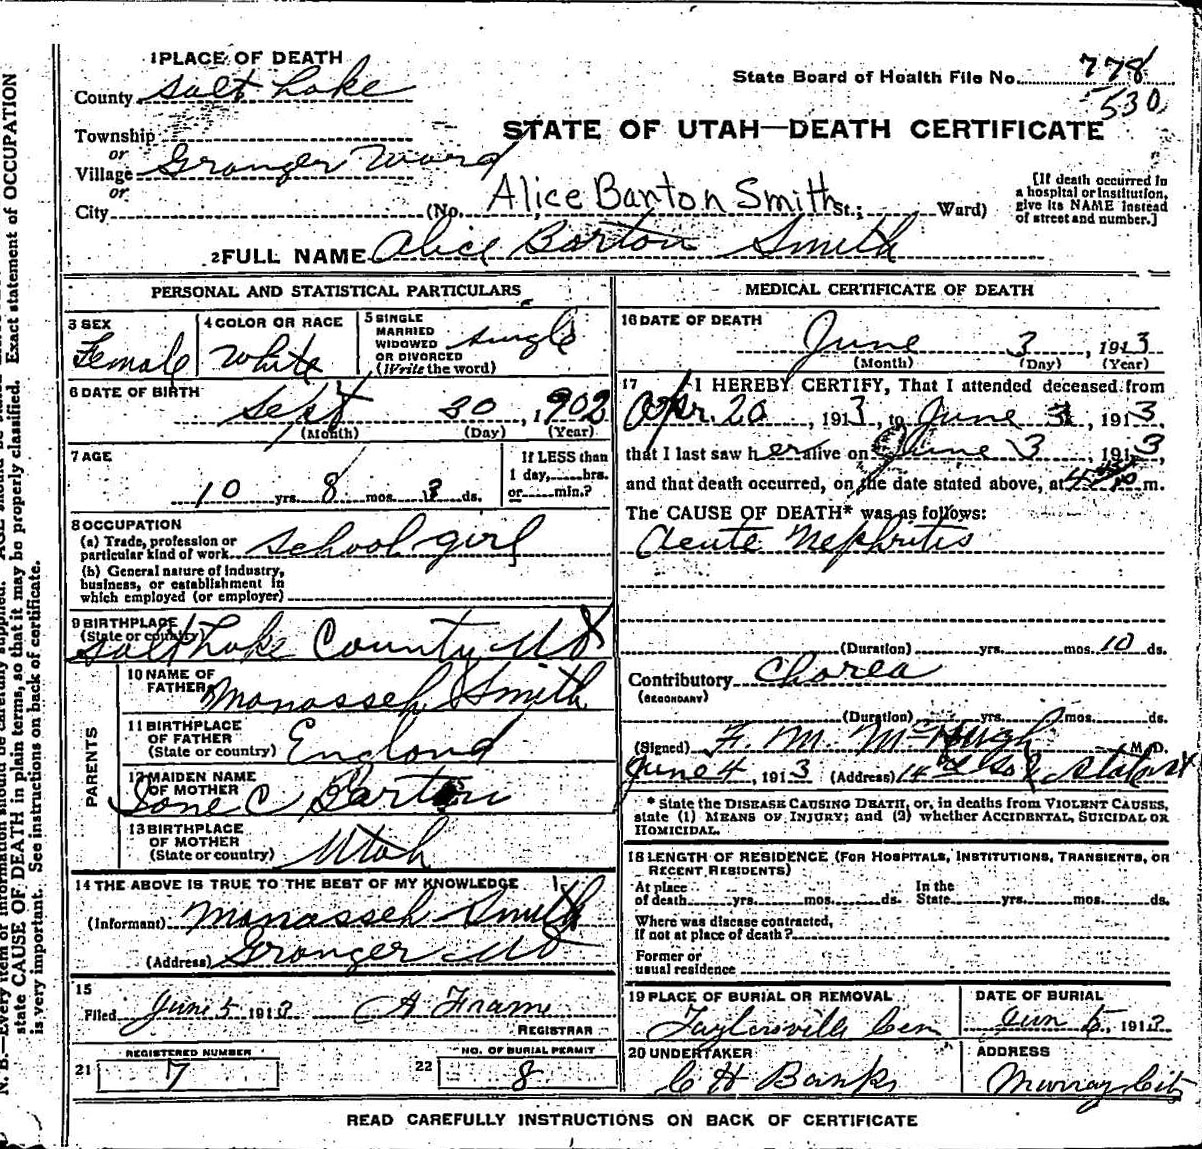 1 PLACE OF DEATH
County Salt Lake
State Board of Health File No. 778
530
Township
or
Village Granger Ward
or
City (No. Alice Barton Smith St.; Ward)
STATE OF UTAH—DEATH CERTIFICATE
[If death occurred in
a hospital or institution,
give its NAME instead
of street and number.]
2 FULL NAME Alice Barton Smith
PERSONAL AND STATISTICAL PARTICULARS
3 SEX
Female
4 COLOR OR RACE
White
5 SINGLE
MARRIED
WIDOWED
OR DIVORCED
(Write the word)
single
6 DATE OF BIRTH
Sept 30, 1902
(Month) (Day) (Year)
7 AGE
10 yrs. 8 mos. 3 ds.
If LESS than
1 day, hrs.
or min.?
8 OCCUPATION
(a) Trade, profession or
particular kind of work school girl
(b) General nature of industry,
business, or establishment in
which employed (or employer)
9 BIRTHPLACE
(State or country)
Salt Lake County Ut
PARENTS
10 NAME OF
FATHER Manasseh Smith
11 BIRTHPLACE
OF FATHER
(State or country) England
12 MAIDEN NAME
OF MOTHER
Jane C Barton
13 BIRTHPLACE
OF MOTHER
(State or country) Utah
14 THE ABOVE IS TRUE TO THE BEST OF MY KNOWLEDGE
(Informant) Manasseh Smith
(Address) Granger Ut
15
Filed June 5 1913 A Frame
REGISTRAR
REGISTERED NUMBER
21 7
NO. OF BURIAL PERMIT
22 8
MEDICAL CERTIFICATE OF DEATH
16 DATE OF DEATH
June 3, 1913
(Month) (Day) (Year)
17 I HEREBY CERTIFY, That I attended deceased from
Apr. 20, 1913, to June 3, 1913
that I last saw her alive on June 3, 1913,
and that death occurred, on the date stated above, at m.
The CAUSE OF DEATH* was as follows:
Acute Nephritis
(Duration) yrs. mos. 10 ds.
Contributory Chorea
(SECONDARY)
(Duration) yrs. mos. ds.
(Signed) F. M. McHugh M. D.
June 4, 1913 (Address) 14th So & State st
* State the DISEASE CAUSING DEATH, or, in deaths from VIOLENT CAUSES,
state (1) MEANS OF INJURY; and (2) whether ACCIDENTAL, SUICIDAL OR
HOMICIDAL.
18 LENGTH OF RESIDENCE (FOR HOSPITALS, INSTITUTIONS, TRANSIENTS, OR
RECENT RESIDENTS)
At place
of death yrs. mos. ds.
In the
State yrs. mos. ds.
Where was disease contracted,
If not at place of death?
Former or
usual residence
19 PLACE OF BURIAL OR REMOVAL
Taylorsville Cem
DATE OF BURIAL
Jun 5, 1913
20 UNDERTAKER
C H Banks
ADDRESS
Murray City
READ CAREFULLY INSTRUCTIONS ON BACK OF CERTIFICATE
state CAUSE OF DEATH in plain terms, so that it may be properly classified. Exact statement of OCCUPATION
is very important. See instructions on back of certificate.